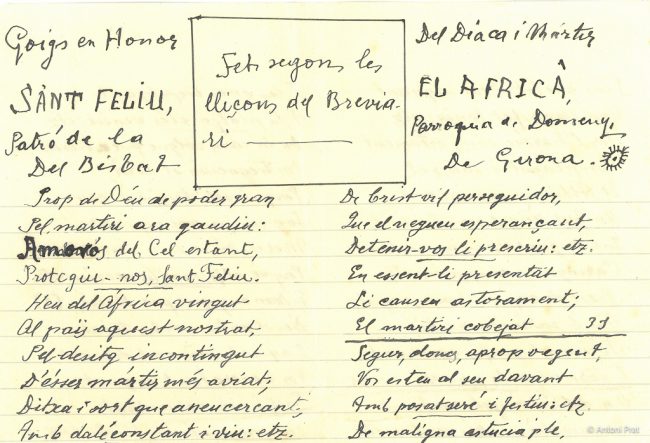 Goigs en Honor
SÀNT FELIU,
Patró de la
Del Bisbat
Fets segons les
lliçons del Brevia-
ri
Del Diaca i Màrtir
EL AFRICÂ,
Parroquia de Domeny,
De Girona.
Prop de Déu de poder gran
Pel martiri ara gaudiu:
Amorós del Cel estant,
Protegiu-nos, Sant Feliu.
Heu del Africa vingut
Al païs aquest nostrat,
Pel desitg incontingut
D'ésser màrtir més aviat;
Ditxa i sort que aneu cercant,
Amb dalé constant i viu: etz.
De Crist vil perseguidor,
Que el negueu esperançant,
Detenir-vos li prescriu: etz.
En essent-li presentat
Li causeu astorament;
El martiri cobejat
Seguer, doncs, aprop
Vos esteu al seu davant
Amb posat seré i festiu: etz.
De maligna astucia ple,
© Antoni Prat